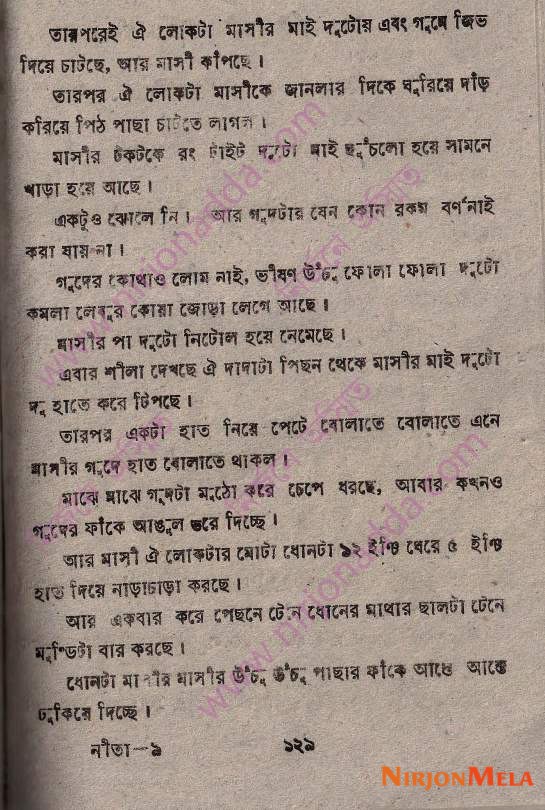 তারপরেই ঐ লোকটা মাসীর মাই দুটোয় এবং গুদে জিভ
দিয়ে চাটছে, আর মাসী কাঁপছে ।
তারপর ঐ লোকটা মাসীকে জানলার দিকে ঘুরিয়ে দাঁড়
করিয়ে পিঠ পাছা চাটতে লাগল ।
মাসীর টকটকে রং টাইট দুটো মাই ছুঁচলো হয়ে সামনে
খাড়া হয়ে আছে ।
একটুও ঝোলে নি । আর গুদটার যেন কোন রকম বর্ণনাই
করা যায় না ।
গুদের কোথাও লোম নাই, ভীষণ উঁচু ফোলা ফোলা দুটো
কমলা লেবুর কোয়া জোড়া লেগে আছে ।
মাসীর পা দুটো নিটোল হয়ে নেমেছে ।
এবার শীলা দেখছে ঐ দাদাটা পিছন থেকে মাসীর মাই দুটো
দু হাতে করে টিপছে ।
তারপর একটা হাত নিয়ে পেটে বোলাতে বোলাতে এনে
মাসীর গুদে হাত বোলাতে থাকল ।
মাঝে মাঝে গুদটা মুঠো করে চেপে ধরছে, আবার কখনও
গুদের ফাঁকে আঙুল ভরে দিচ্ছে ।
আর মাসী ঐ লোকটার মোটা ধোনটা ১২ ইঞ্চি ঘেরে ৫ ইঞ্চি
হাত দিয়ে নাড়াচাড়া করছে ।
আর একবার করে পেছনে টেনে ধোনের মাথার ছালটা টেনে
মুণ্ডিটা বার করছে ।
ধোনটা মাসীর মাসীর উঁচু উঁচু পাছার ফাঁকে আস্তে আস্তে
ঢুকিয়ে দিচ্ছে ।
নীতা—৯ ১২৯
NIRJONMELA